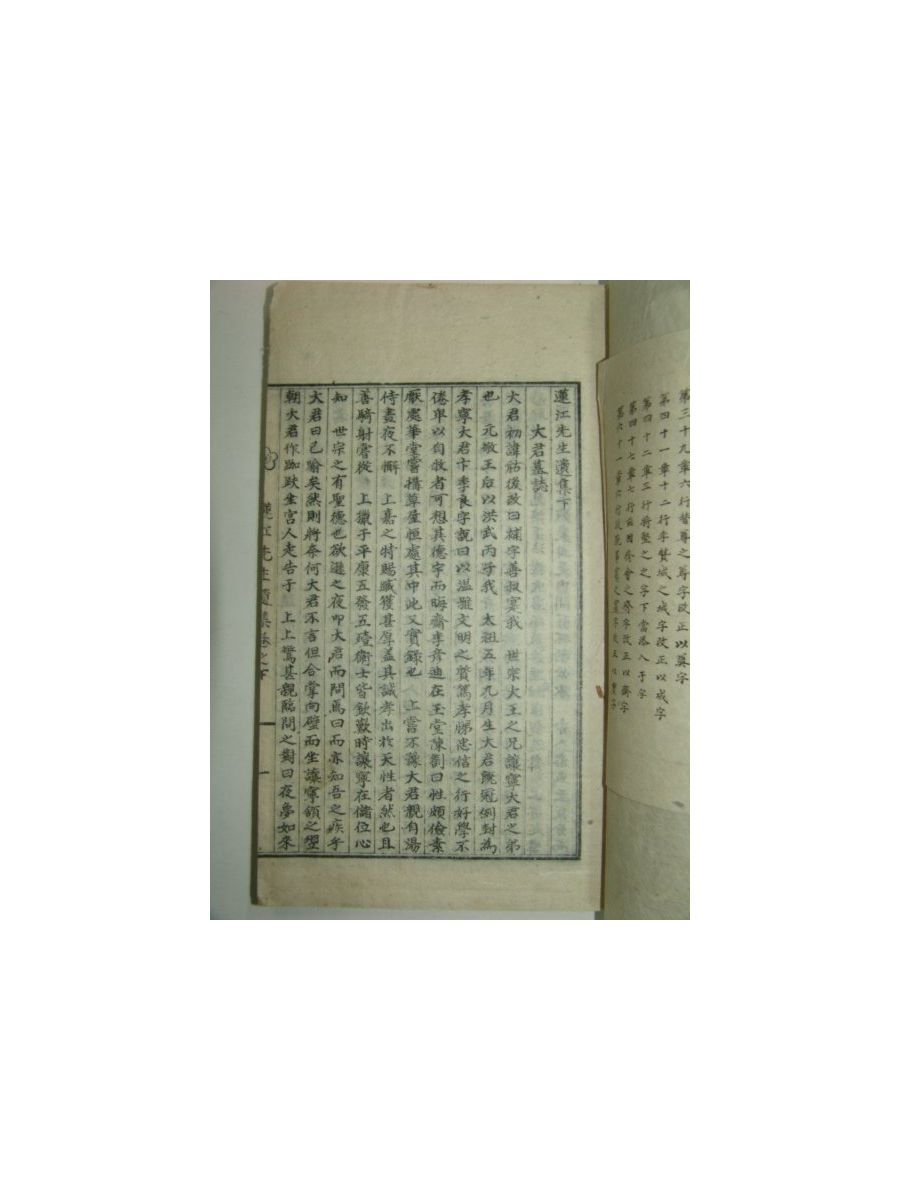 第三十九章六行贊尊之尊字改正以奠字
第四十一章十二行李贊城之城字改正以成字
第四十二章三行將堅之之字下當添入于字
第四十七章七行
之齊字改正以齋字
第六十一章六行
字改正以
字
蓮江先生遺集下
大君墓誌
大君初諱祜後改曰補字善叔寔我 世宗大王之兄讓寧大君之弟
也 元敬王后以洪武丙子我 太祖五年九月生大君旣冠例封為
孝寧大君卞季良字說曰以溫雅文明之資篤孝悌忠信之行好學不
倦卑以自牧者可想其德宇而晦齋李彥迪在玉堂陳劄曰性頗儉素
厭處華堂嘗構草屋恒處其中此又實錄也 上嘗不豫大君親自湯
侍晝夜不懈 上嘉之特賜臧獲甚厚盖其誠孝出於天性者然也且
善騎射嘗從 上獵于平康五發五殪衛士皆欽歎時讓寧在儲位心
知 世宗之有聖德也欲遜之夜叩大君而問焉曰而亦知吾之疾乎
大君曰已喻矣然則將奈何大君不言但合掌向壁而坐讓寧頷之翌
朝大君作跏趺坐宮人走告于 上上驚甚親臨問之對曰夜夢如來
蓮江先生遺集卷之下
一